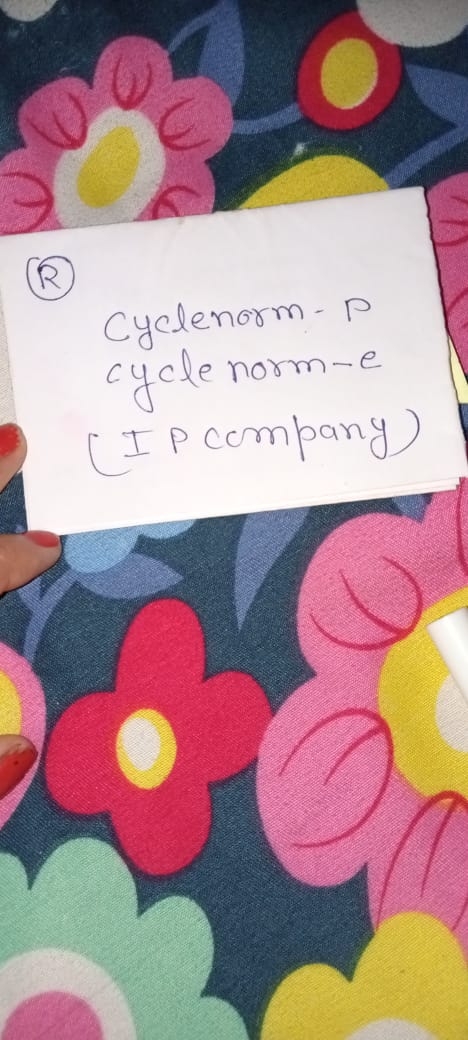 R
Cyclenorm - P
cycle norm-e
(I P company)